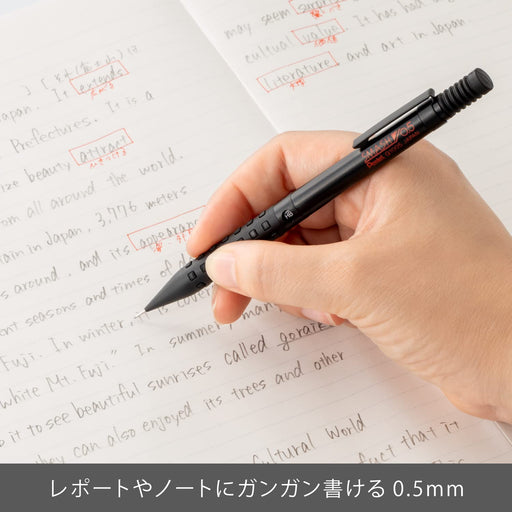 may seem surprise
th. It has had a
cultural value
and art in Japan
literature,
Japan. It extends
Prefectures. It is a
ize beauty attract
om all around the world.
tain in Japan, 3,776 meters
s around, and its appearance
ent seasons and times of d
In winter, it is cove
Fuji. In summer, many
white Mt. Fuji."
called goraik
to it to see beautiful sunrises
they can also enjoyed its trees and other
Cultural World
fact that it
SMASH 05
Pentel Q1005 JAPAN
HB
レポートやノートにガンガン書ける 0.5mm